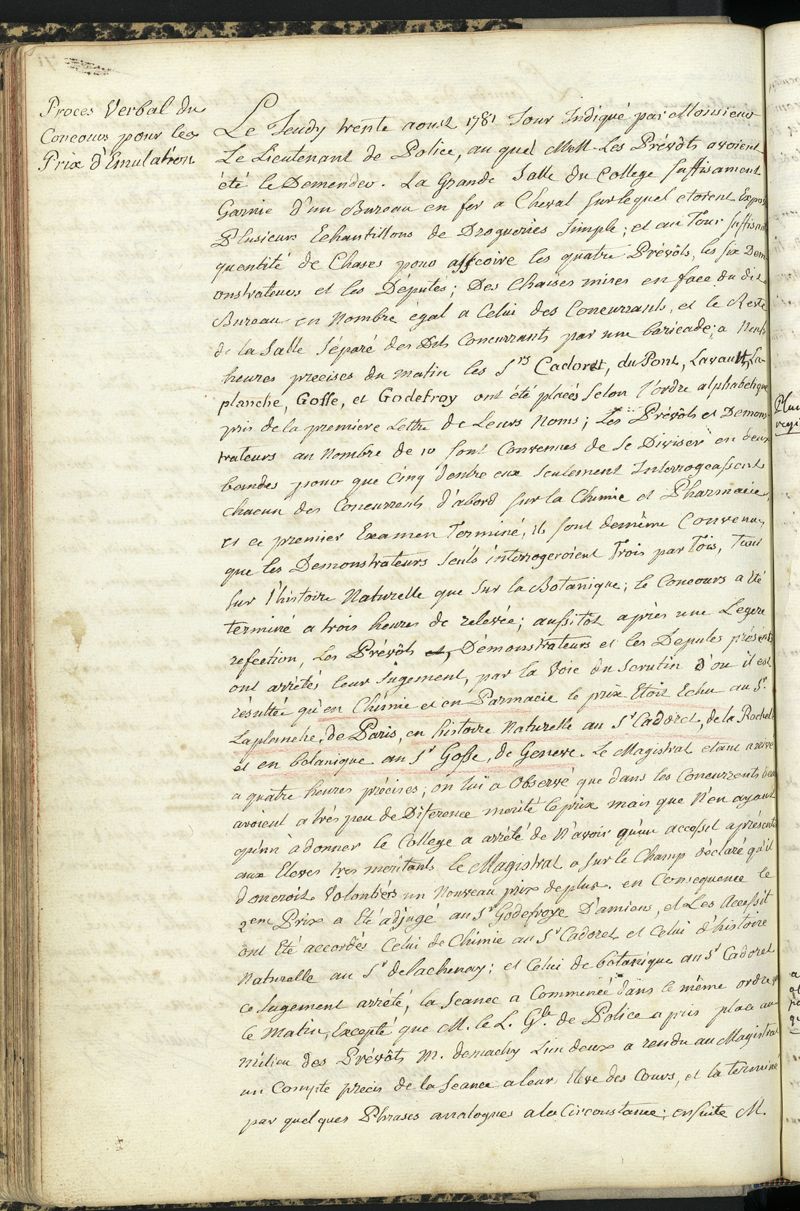 Procès Verbal du
Concours pour les
Prix d'Emulation
Le Jeudy trente aoust 1781 Jour Indiqué par Monsieur
Le Lieutenant de Police, au quel MM. Les Prévôts avoient
été le Demender. La Grande Salle du College Suffisament
Garnie d'un Bureau en fer a Cheval Surlequel etoient Expos
Plusieurs Echantillons de Drogueries Simple; et au Tour Suffisan
quentité de Chases pour asseoire les quatre Prévôts, les six Dem
onstrateurs et les Deputés; Des Chaises mises en face du dit
Bureau en Nombre égal a Celui des Concurrants, et le Reste
de la Salle Séparé des Dits Concurrants par une baricade; a Neuf
heures precises du matin les Srs Cadoret, du Pont, Lavault, La
planche, Gosse, et Godefroy ont été placés Selon l'ordre alphabetique
pris de la premiere Lettre de Leurs Noms; Les Prévôts et Demons
trateurs au Nombre de 10 Sont Convennes de Se Diviser en deux
bandes pour que Cinq d'entre eux Seulement Interrogeassent
chacun des Concurrents d'abord Sur la Chimie et Pharmacie
et ce premier Examen Terminé, il Sont demême Convenu,
que les Demonstrateurs Seuls interrogeroient Trois par Tois, Tant
Sur l'histoire Naturelle que Sur la Botanique; le Concours a été
terminé a trois heures de relevée; aussitot après une Legere
refection, Les Prévôts et, Démonstrateurs et les Deputes présents
ont arrêtés leur Jugement, par la Voie du Scrutin d'ou il est
résulté qu'en Chimie et en Parmacie le prix Etoit Echu au Sr.
Laplanche, de Paris, en histoire Naturelle au Sr Cadoret, de la Rochelle
et en botanique au Sr Gosse, de Geneve. Le Magistrat etant arrivé
a quatre heures précises, on lui a Observé que dans les Concurrents
avoient a très peu de Diference merité le prix mais que N'en ayant
qu'un à donner le College a arrêté de N'avoir qu'un accessit a présenter
aux Eleves tres meritants le Magistrat a Sur le Champ déclaré qu'il
donneroit Volontiers un Nouveau prix de plus. en Consequence le
2em Prix a Eté adjugé au Sr Godefroye D'amiens, et Les Accessit
ont Eté accordés Celui de Chimie au Sr Cadoret et Celui d'histoire
Naturelle au Sr delachenay; et Celui de botanique au Sr Cadoret
ce Jugement arrêté, la Seance a Commencé dans le même ordre
le matin, Excepté que M. le L. Gle de Police a pris place au
milieu des Prévôts M. demachy L'un deux a rendu au Magistrat
un Compte précis de la Seance a leur Eleve des Cours, et la terminé
par quelques Phrases analogues a la Circonstance; ensuite M.